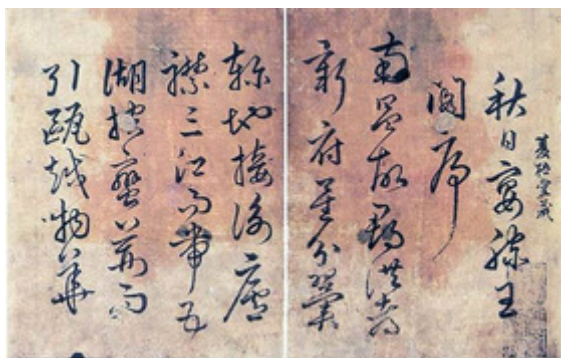 秋日宴滕王
閣序
南昌故郡洪都
新府星分翼
軫地接衡廬
襟三江而帶五
湖控蠻荆而
引甌越物華